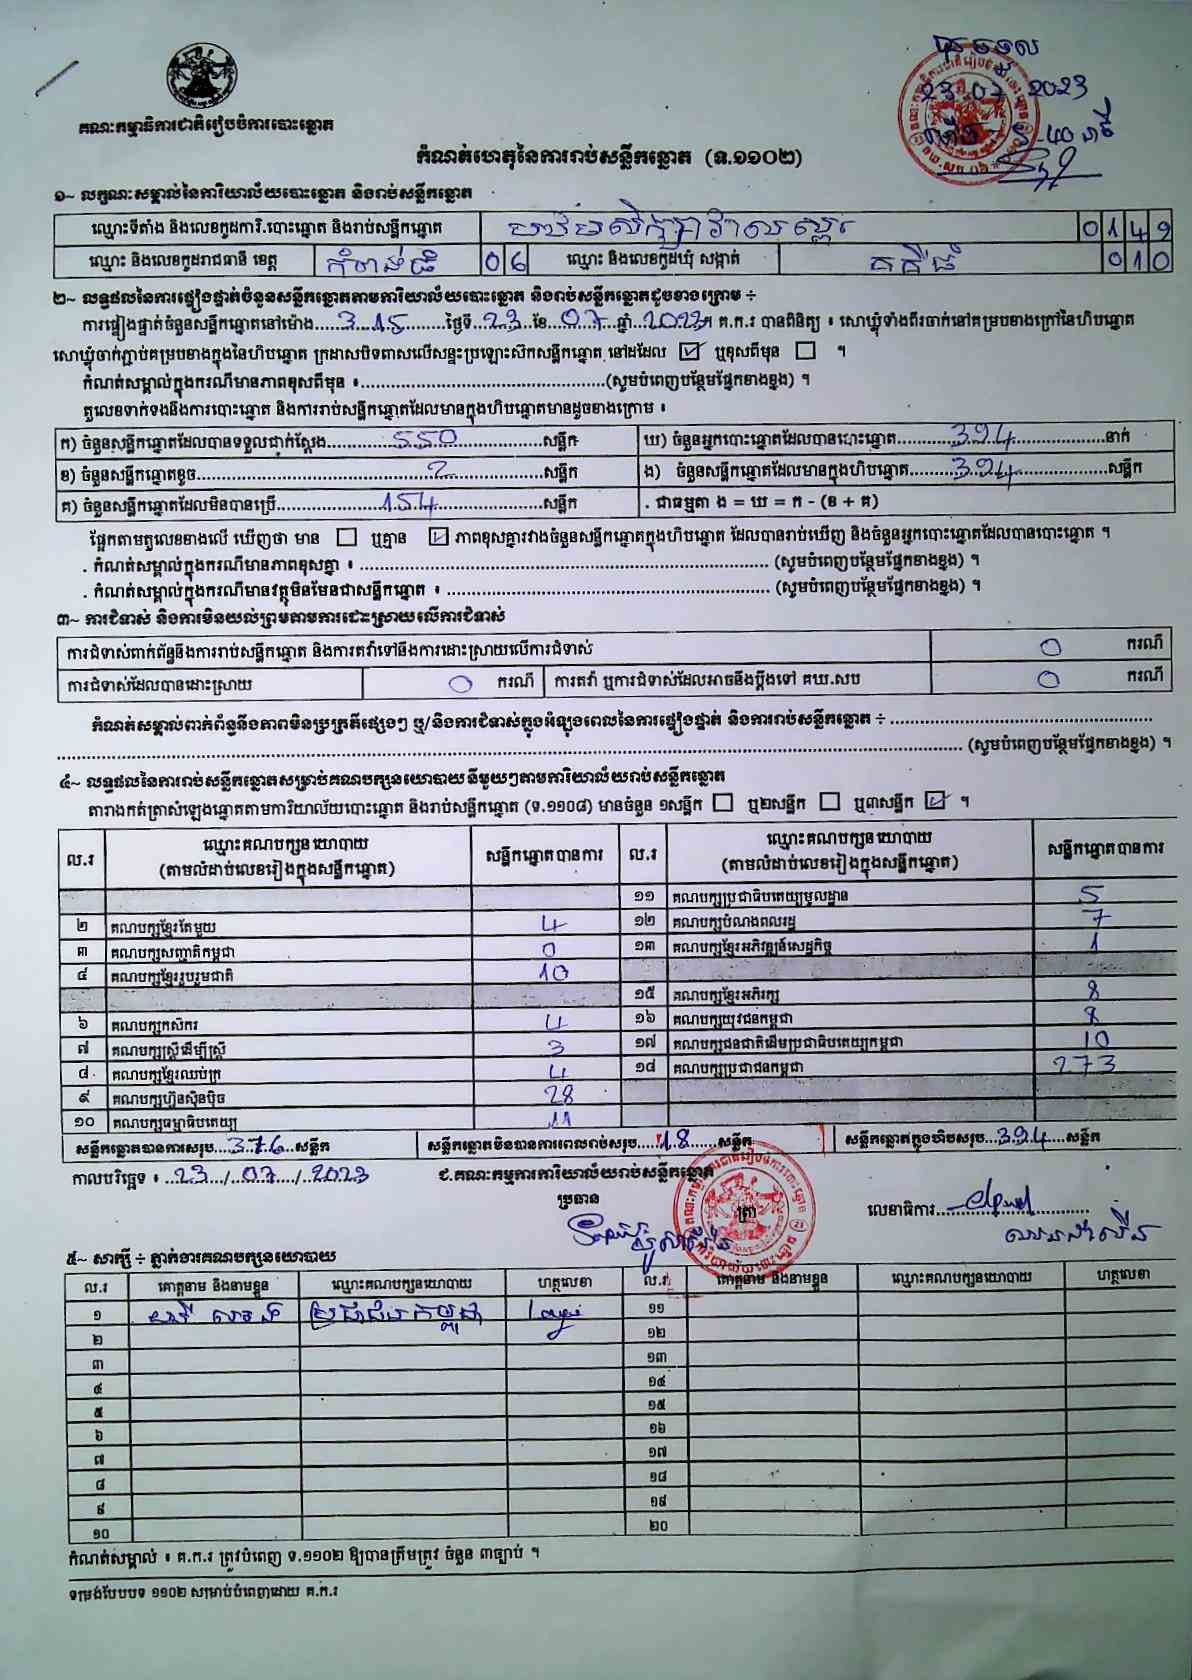 គណៈកម្មាធិការជាតិរៀបចំការបោះឆ្នោត
23 07 2023
កំណត់ហេតុនៃការរាប់សន្លឹកឆ្នោត (ទ.១១០២)
១~ លក្ខណៈសម្គាល់នៃការិយាល័យបោះឆ្នោត និងរាប់សន្លឹកឆ្នោត
ឈ្មោះទីតាំង និងលេខកូដការិ.បោះឆ្នោត និងរាប់សន្លឹកឆ្នោត 0149
ឈ្មោះ និងលេខកូដរាជធានី ខេត្ត កំពង់ធំ 06 ឈ្មោះ និងលេខកូដឃុំ សង្កាត់ គគីធំ 010
២~ លទ្ធផលនៃការផ្ទៀងផ្ទាត់ចំនួនសន្លឹកឆ្នោតតាមការិយាល័យបោះឆ្នោត និងរាប់សន្លឹកឆ្នោតដូចខាងក្រោម ÷
ការផ្ទៀងផ្ទាត់ចំនួនសន្លឹកឆ្នោតនៅម៉ោង...3 15...ថ្ងៃទី...23...ខែ...07...ឆ្នាំ...2023។ គ.ក.រ បានពិនិត្យ ៖ សោឃ្លុំទាំងពីរចាក់នៅគម្របខាងក្រៅនៃហិបឆ្នោត
សោឃ្លុំចាក់ភ្ជាប់គម្របខាងក្នុងនៃហិបឆ្នោត ក្រដាសបិទពាសលើសន្ទះប្រឡោះស៊កសន្លឹកឆ្នោត នៅដដែល ☑ ឬខុសពីមុន ☐ ។
កំណត់សម្គាល់ក្នុងករណីមានភាពខុសពីមុន ៖...(សូមបំពេញបន្ថែមផ្នែកខាងខ្នង) ។
តួលេខទាក់ទងនឹងការបោះឆ្នោត និងការរាប់សន្លឹកឆ្នោតដែលមានក្នុងហិបឆ្នោតមានដូចខាងក្រោម ៖
ក) ចំនួនសន្លឹកឆ្នោតដែលបានទទួលជាក់ស្ដែង...550...សន្លឹក ឃ) ចំនួនអ្នកបោះឆ្នោតដែលបានបោះឆ្នោត...394...នាក់
ខ) ចំនួនសន្លឹកឆ្នោតខូច...2...សន្លឹក ង) ចំនួនសន្លឹកឆ្នោតដែលមានក្នុងហិបឆ្នោត...394...សន្លឹក
គ) ចំនួនសន្លឹកឆ្នោតដែលមិនបានប្រើ...154...សន្លឹក . ជាធម្មតា ង = ឃ = ក - (ខ + គ)
ផ្អែកតាមតួលេខខាងលើ ឃើញថា មាន ☐ ឬគ្មាន ☑ ភាពខុសគ្នារវាងចំនួនសន្លឹកឆ្នោតក្នុងហិបឆ្នោត ដែលបានរាប់ឃើញ និងចំនួនអ្នកបោះឆ្នោតដែលបានបោះឆ្នោត ។
. កំណត់សម្គាល់ក្នុងករណីមានភាពខុសគ្នា ៖ ... (សូមបំពេញបន្ថែមផ្នែកខាងខ្នង) ។
. កំណត់សម្គាល់ក្នុងករណីមានវត្ថុមិនមែនជាសន្លឹកឆ្នោត ៖ ... (សូមបំពេញបន្ថែមផ្នែកខាងខ្នង) ។
៣~ ការជំទាស់ និងការមិនយល់ព្រមតាមការដោះស្រាយលើការជំទាស់
ការជំទាស់ពាក់ព័ន្ធនឹងការរាប់សន្លឹកឆ្នោត និងការតវ៉ាទៅនឹងការដោះស្រាយលើការជំទាស់ 0 ករណី
ការជំទាស់ដែលបានដោះស្រាយ 0 ករណី ការតវ៉ា ឬការជំទាស់ដែលអាចនឹងប្ដឹងទៅ គឃ.សប 0 ករណី
កំណត់សម្គាល់ពាក់ព័ន្ធនឹងភាពមិនប្រក្រតីផ្សេងៗ ឬ/និងការជំទាស់ក្នុងអំឡុងពេលនៃការផ្ទៀងផ្ទាត់ និងការរាប់សន្លឹកឆ្នោត ÷ ...
... (សូមបំពេញបន្ថែមផ្នែកខាងខ្នង) ។
៤~ លទ្ធផលនៃការរាប់សន្លឹកឆ្នោតសម្រាប់គណបក្សនយោបាយនីមួយៗតាមការិយាល័យរាប់សន្លឹកឆ្នោត
តារាងកត់ត្រាសំឡេងឆ្នោតតាមការិយាល័យបោះឆ្នោត និងរាប់សន្លឹកឆ្នោត (ទ.១១០៨) មានចំនួន ១សន្លឹក ☐ ឬ២សន្លឹក ☐ ឬ៣សន្លឹក ☑ ។
ល.រ ឈ្មោះគណបក្សនយោបាយ សន្លឹកឆ្នោតបានការ ល.រ ឈ្មោះគណបក្សនយោបាយ សន្លឹកឆ្នោតបានការ
(តាមលំដាប់លេខរៀងក្នុងសន្លឹកឆ្នោត) (តាមលំដាប់លេខរៀងក្នុងសន្លឹកឆ្នោត)
១១ គណបក្សប្រជាធិបតេយ្យមូលដ្ឋាន 5
២ គណបក្សខ្មែរតែមួយ 4 ១២ គណបក្សបំណងពលរដ្ឋ 7
៣ គណបក្សសញ្ជាតិកម្ពុជា 0 ១៣ គណបក្សខ្មែរអភិវឌ្ឍន៍សេដ្ឋកិច្ច 1
៤ គណបក្សខ្មែររួបរួមជាតិ 10
១៥ គណបក្សខ្មែរអភិរក្ស 8
៦ គណបក្សកសិករ 4 ១៦ គណបក្សយុវជនកម្ពុជា 8
៧ គណបក្សស្ត្រីដើម្បីស្ត្រី 3 ១៧ គណបក្សជនជាតិដើមប្រជាធិបតេយ្យកម្ពុជា 10
៨ គណបក្សខ្មែរឈប់ក្រ 4 ១៨ គណបក្សប្រជាជនកម្ពុជា 273
៩ គណបក្សហ៊្វុនស៊ិនប៉ិច 28
១០ គណបក្សធម្មាធិបតេយ្យ 11
សន្លឹកឆ្នោតបានការសរុប...376...សន្លឹក សន្លឹកឆ្នោតមិនបានការពេលរាប់សរុប...18...សន្លឹក សន្លឹកឆ្នោតក្នុងហិបសរុប...394...សន្លឹក
កាលបរិច្ឆេទ ៖ ..23../..07../..2023 ជ.គណៈកម្មការការិយាល័យរាប់សន្លឹកឆ្នោត
ប្រធាន ត្រា លេខាធិការ...
៥~ សាក្សី ÷ ភ្នាក់ងារគណបក្សនយោបាយ
ល.រ គោត្តនាម និងនាមខ្លួន ឈ្មោះគណបក្សនយោបាយ ហត្ថលេខា ល.រ គោត្តនាម និងនាមខ្លួន ឈ្មោះគណបក្សនយោបាយ ហត្ថលេខា
១ ប្រជាជនកម្ពុជា ១១
២ ១២
៣ ១៣
៤ ១៤
៥ ១៥
៦ ១៦
៧ ១៧
៨ ១៨
៩ ១៩
១០ ២០
កំណត់សម្គាល់ ៖ គ.ក.រ ត្រូវបំពេញ ទ.១១០២ ឱ្យបានត្រឹមត្រូវ ចំនួន ៣ច្បាប់ ។
ទម្រង់បែបបទ ១១០២ សម្រាប់បំពេញដោយ គ.ក.រ